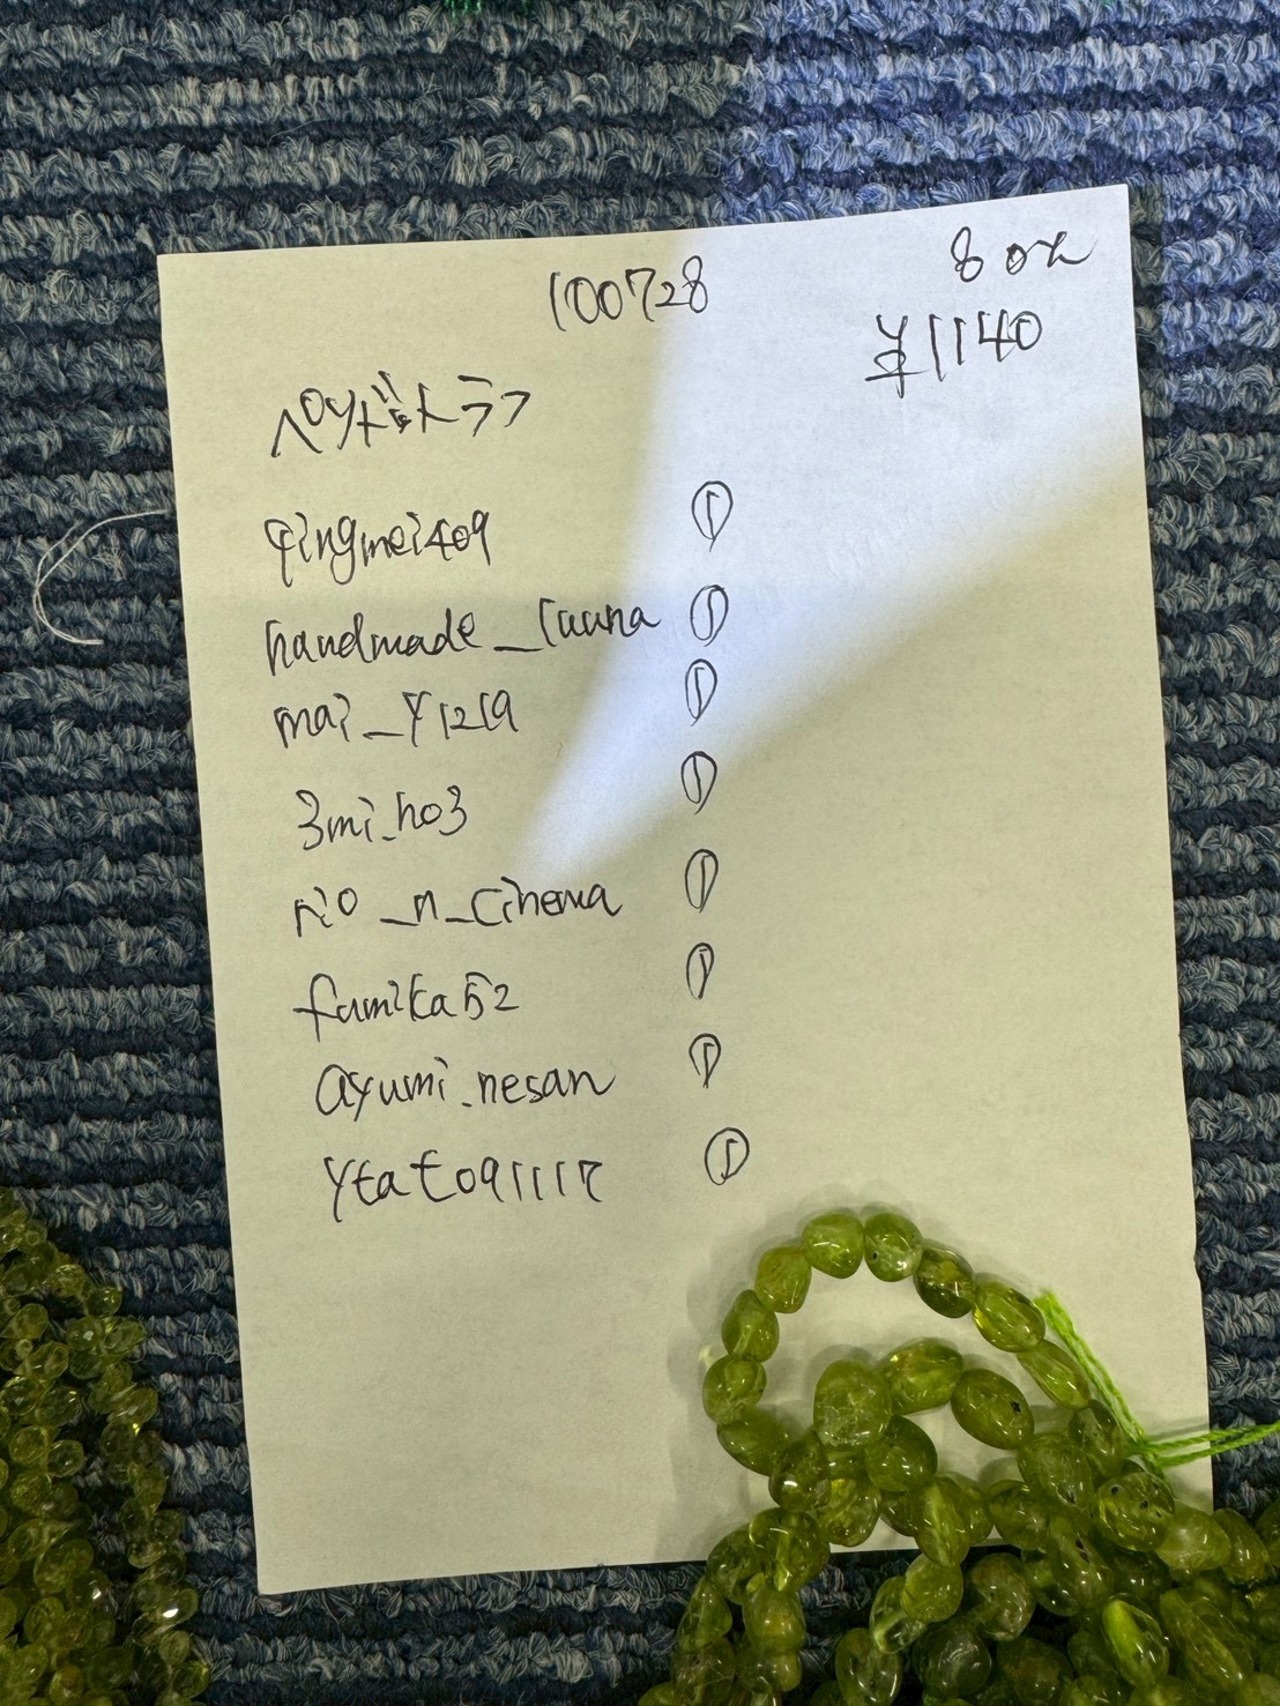 100728
8 on
¥1140
ペリドットラフ
qingmei409 ①
handmade_luuna ①
mai_y1219 ①
3mi_ho3 ①
rio_n_cinema ①
fumika52 ①
ayumi.nesan ①
ytato091117 ①